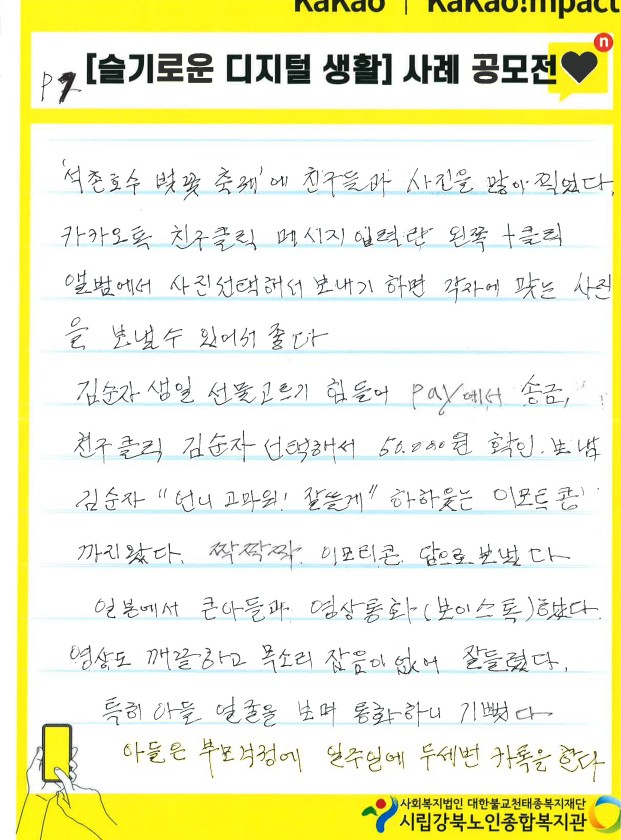 Kakao | Kakao!mpact
P2 [슬기로운 디지털 생활] 사례 공모전
n
'석촌호수 벚꽃 축제'에 친구들과 사진을 많이 찍었다.
카카오톡 친구클릭 메시지입력란 왼쪽 +클릭
앨범에서 사진선택해서 보내기 하면 각자에 맞는 사진
을 보낼수 있어서 좋다
김순자 생일 선물고르기 힘들어 pay에서 송금,
친구클릭 김순자 선택해서 50.000원 확인. 보냄
김순자 "언니 고마워! 잘쓸게" 하하웃는 이모티콘
까지왔다. 짝짝짝. 이모티콘. 답으로 보냈다
일본에서 큰아들과 영상통화(보이스톡)했다.
영상도 깨끗하고 목소리 잡음이 없어 잘들렸다.
특히 아들 얼굴을 보며 통화하니 기뻤다
아들은 부모걱정에 일주일에 두세번 카톡을 한다
사회복지법인 대한불교천태종복지재단
시립강북노인종합복지관